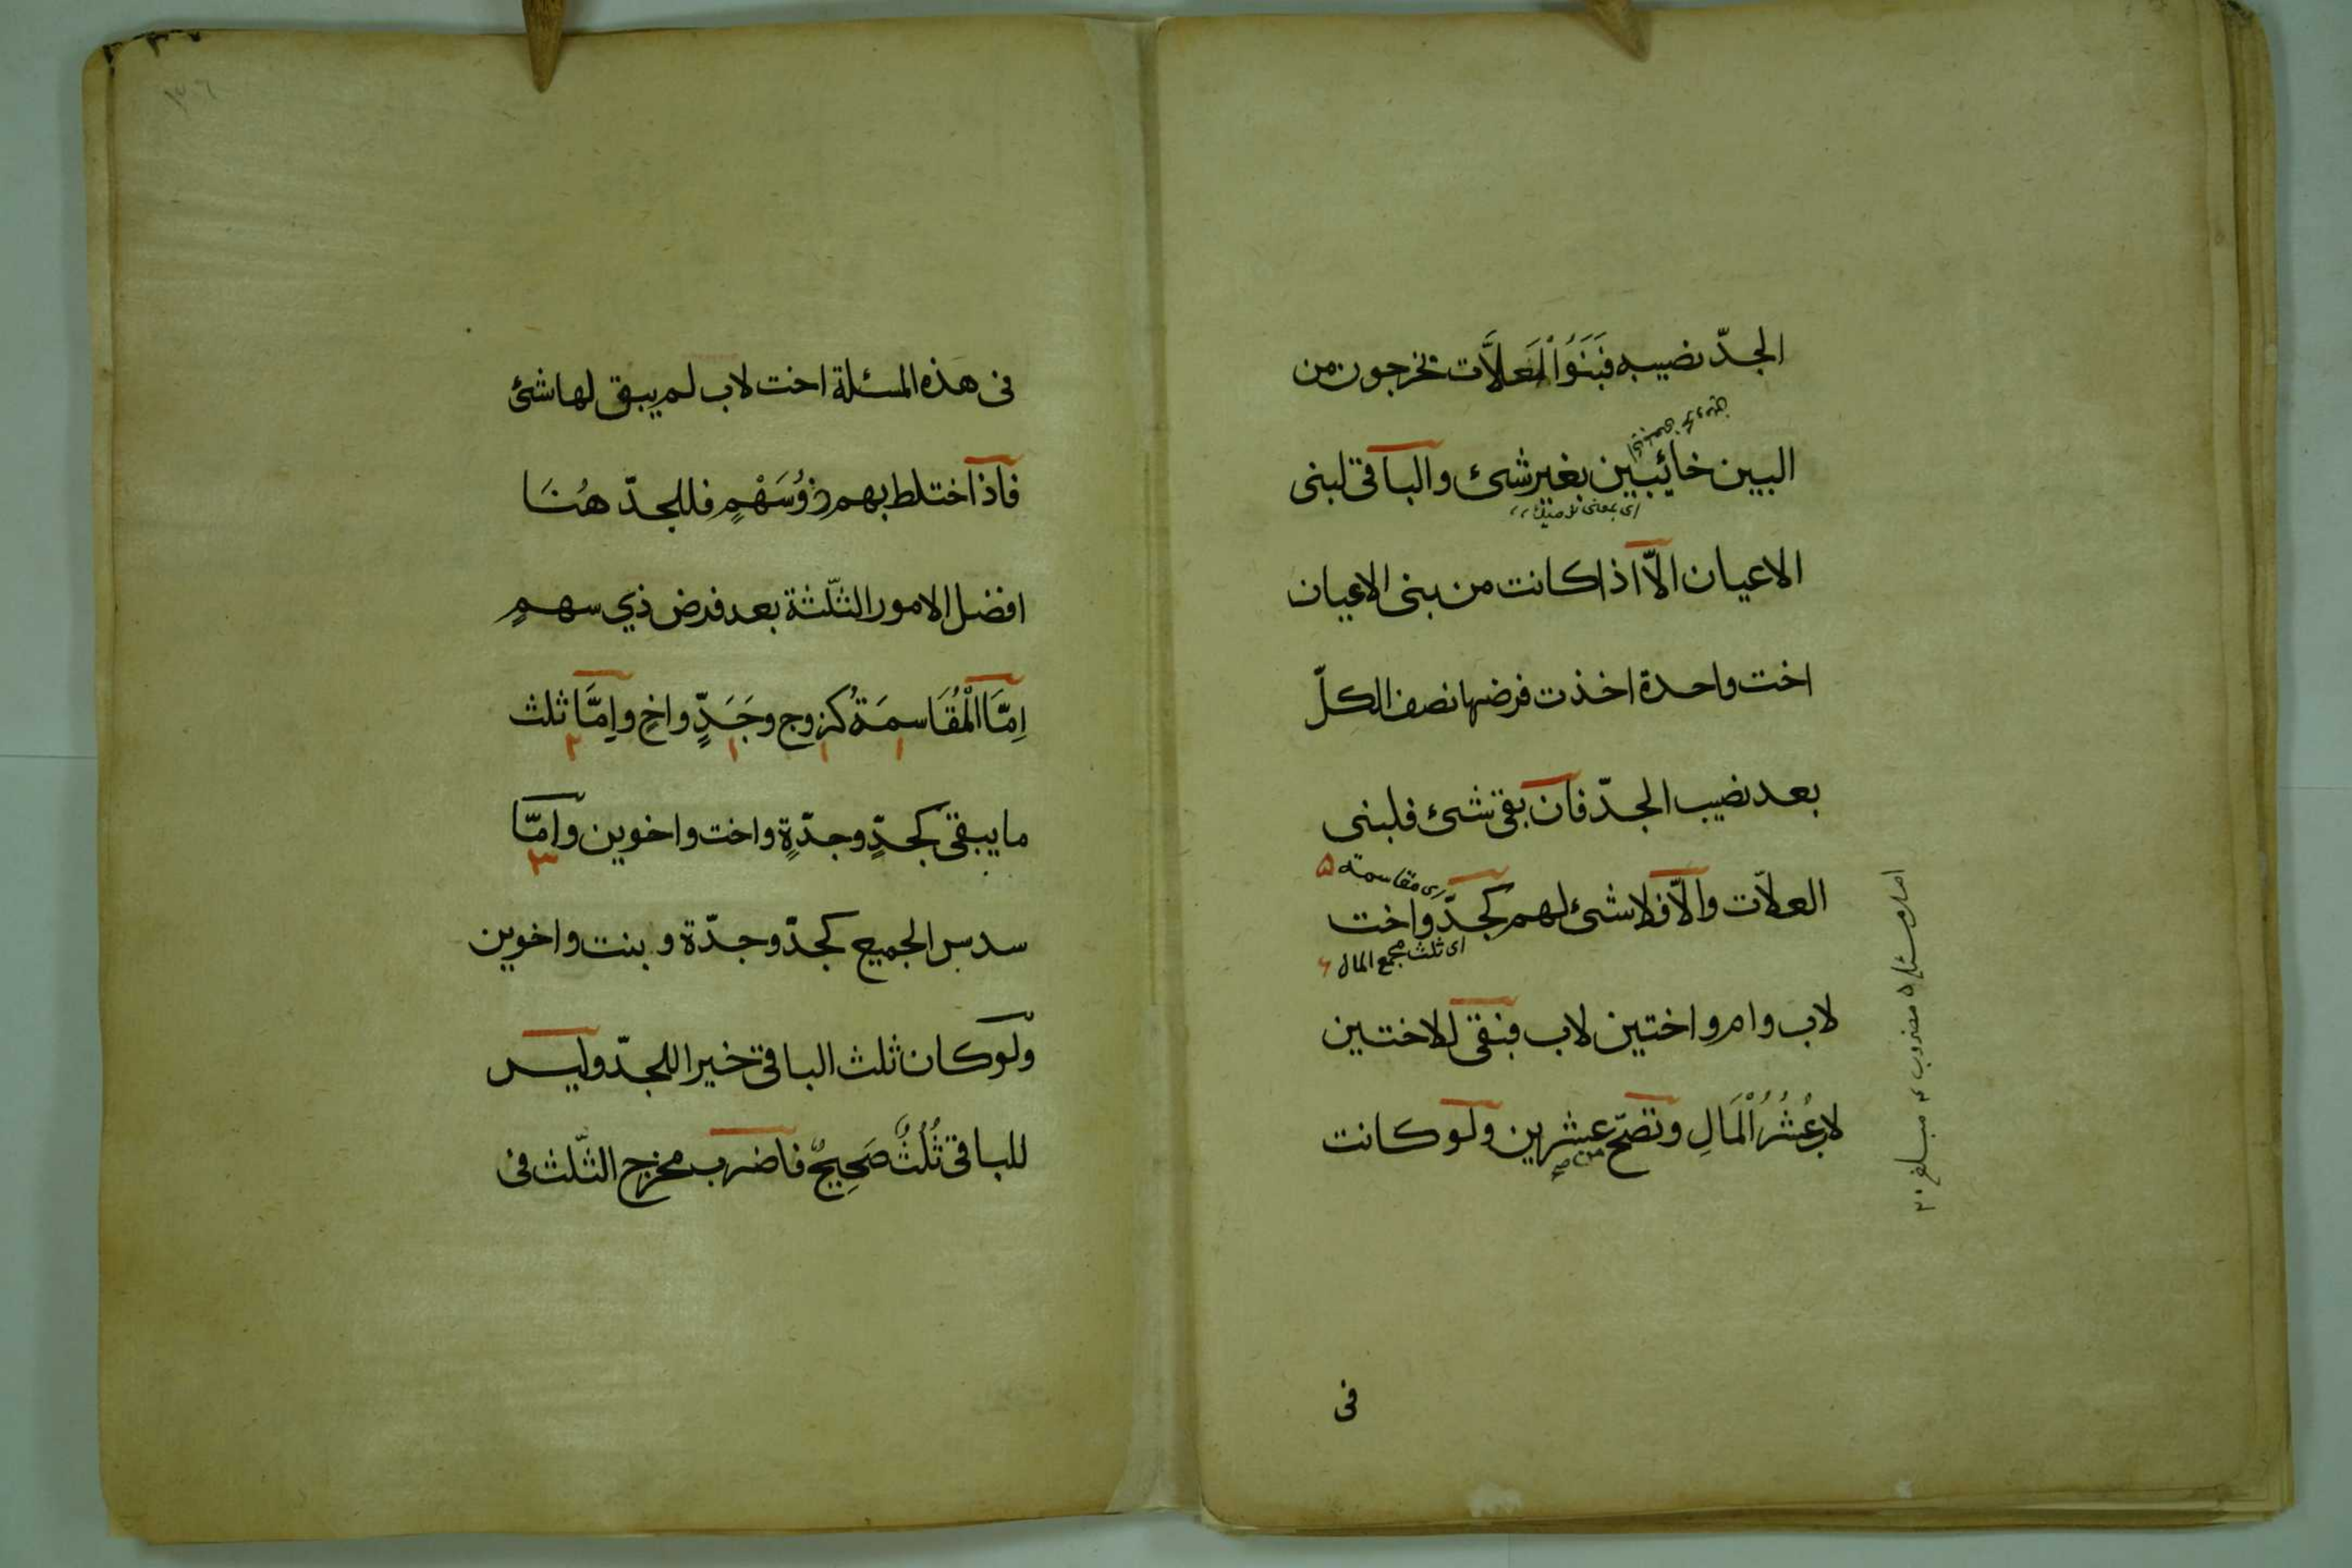 الجدّ نصيبه فَبَنَوُا الْعَلاَّت تخرجون من
البين خائبين بغير شئ والباقى لبنى
الاعيان الاّ اذا كانت من بنى الاعيان
اخت واحدة اخذت فرضها نصف الكلّ
بعد نصيب الجدّ فان بقى شئ فلبنى
اى مقاسمة ۵
العلاّت والاّ فلا شئ لهم كجدّ واخت
اى ثلث جميع المال ۶
لاب وام واختين لاب فبقى للاختين
لاب عُشْرُ الْمَالِ وتصحّ عشرين ولو كانت
من
فى
٣٠٦
فى هذه المسئلة اخت لاب لم يبق لها شئ
فاذا اختلط بهم ذُوسَهْمٍ فللجدّ هُنَا
افضل الامور الثّلثة بعد فرض ذي سهمٍ
اِمَّا الْمُقَاسمَةُ كزوج وجَدٍّ واخٍ واِمَّا ثلث
١ ١ ١ ٢
ما يبقى كجدٍّ وجدّةٍ واخت واخوين وامّا
٣
سدس الجميع كجدّ وجدّة و بنت واخوين
ولو كان ثلث الباقى خيرا للجدّ وليس
للباقى ثُلُثٌ صَحِيحٌ فاضرب مخرج الثّلث فى